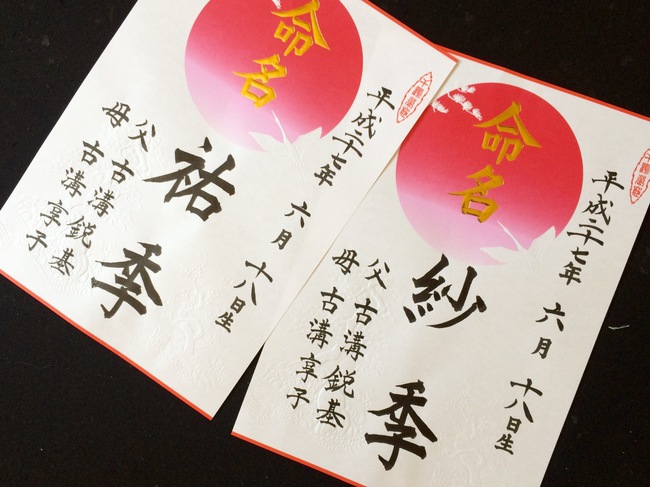 平成二十七年 六月 十八日生
命名
祐季
父 古溝鋭基
母 古溝享子
平成二十七年 六月 十八日生
命名
紗季
父 古溝鋭基
母 古溝享子